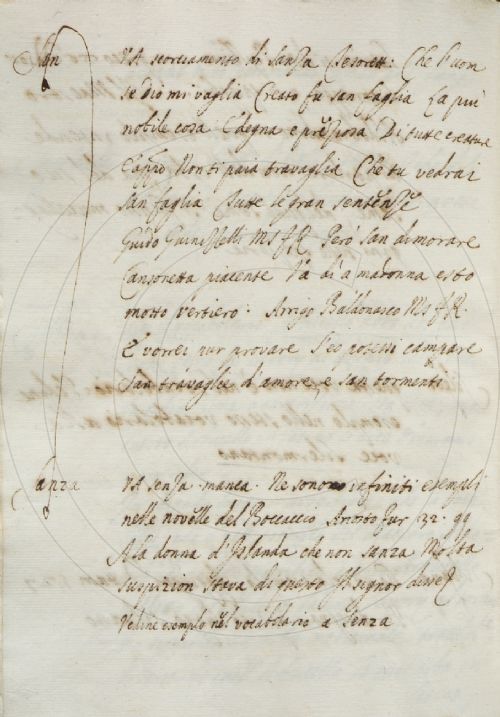 San VA accorciamento di Sanza Tesorett: Che l'uom
se dio mi vaglia Creato fu san faglia La piu
nobile cosa E degna e preziosa Di tutte creatura
E appo Non ti paia travaglia Che tu vedrai
San faglia Tutte le gran sentenze
Guido Guinisselli Ms f R Però san dimorare
Cansonetta piacente Va di a madonna esto
motto vertiero: Arrigo Baldonasco Ms f R.
E vorrei pur provare S'eo potessi campare
San travaglie d'amore, e san tormenti
Sanza VA senza manca. Ne sono infiniti esempli
nelle novelle del Boccaccio Ariosto fur 32. 99
A la donna d'Islanda che non sanza Molta
suspizion stava di questo Il signor disse &
Vedine esemplo nel vocabolario a Senza